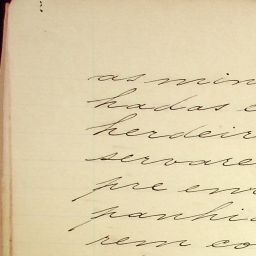 as min
hadas e
herdeir
servare
pre em
panhi
rem co